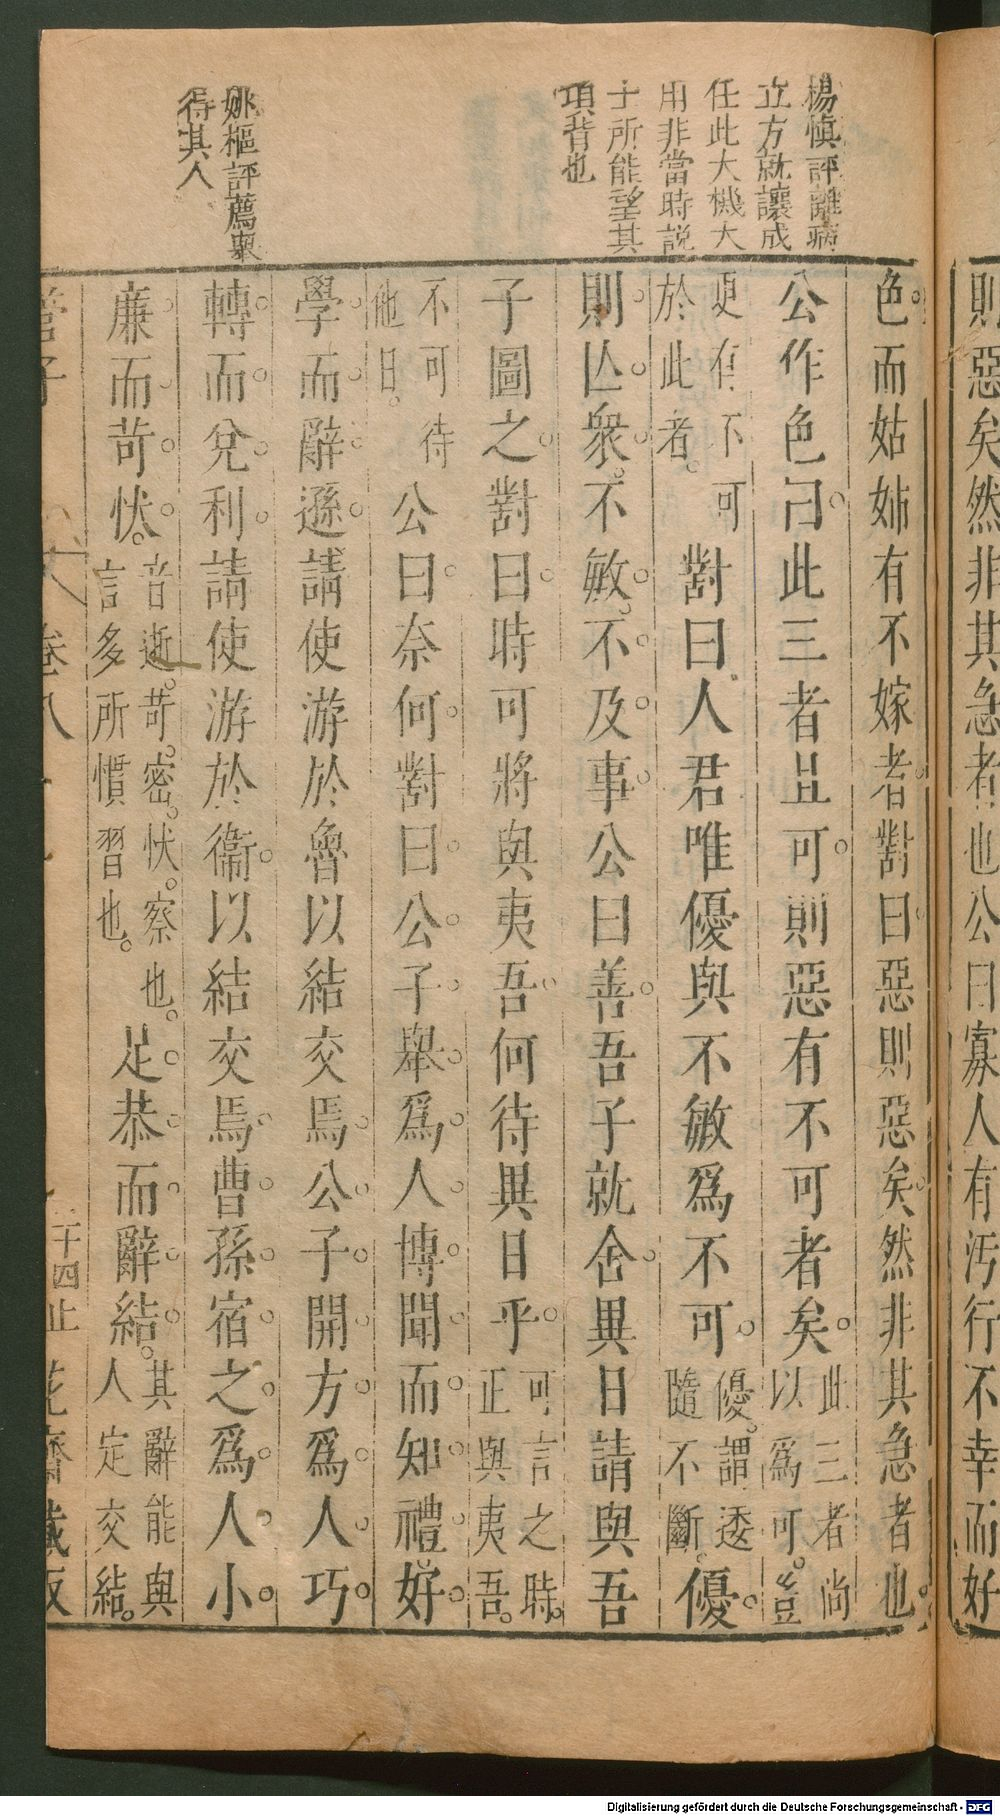 則惡矣然非其急者也公曰寡人有汚行不幸而好
楊慎評離病
立方就讓成
任此大機大
用非當時説
士所能望其
項背也
姚樞評薦舉
得其人
色而姑姊有不嫁者對曰惡則惡矣然非其急者也
公作色曰此三者且可則惡有不可者矣此三者尚
以爲可豈
更有不可
於此者對曰人君唯優與不敏爲不可優謂逶
隨不斷優
則亾衆不敏不及事公曰善吾子就舍異日請與吾
子圖之對曰時可將與夷吾何待異日乎可言之時
正與夷吾
不可待
他日公曰奈何對曰公子舉爲人博聞而知禮好
學而辭遜請使游於魯以結交焉公子開方爲人巧
轉而兌利請使游於衞以結交焉曹孫宿之爲人小
廉而苛忕音逝苛密忕察也
言多所慣習也足恭而辭結其辭能與
人定交結
管子 卷八 二十四止 花齋藏版
Digitalisierung gefördert durch die Deutsche Forschungsgemeinschaft - DFG